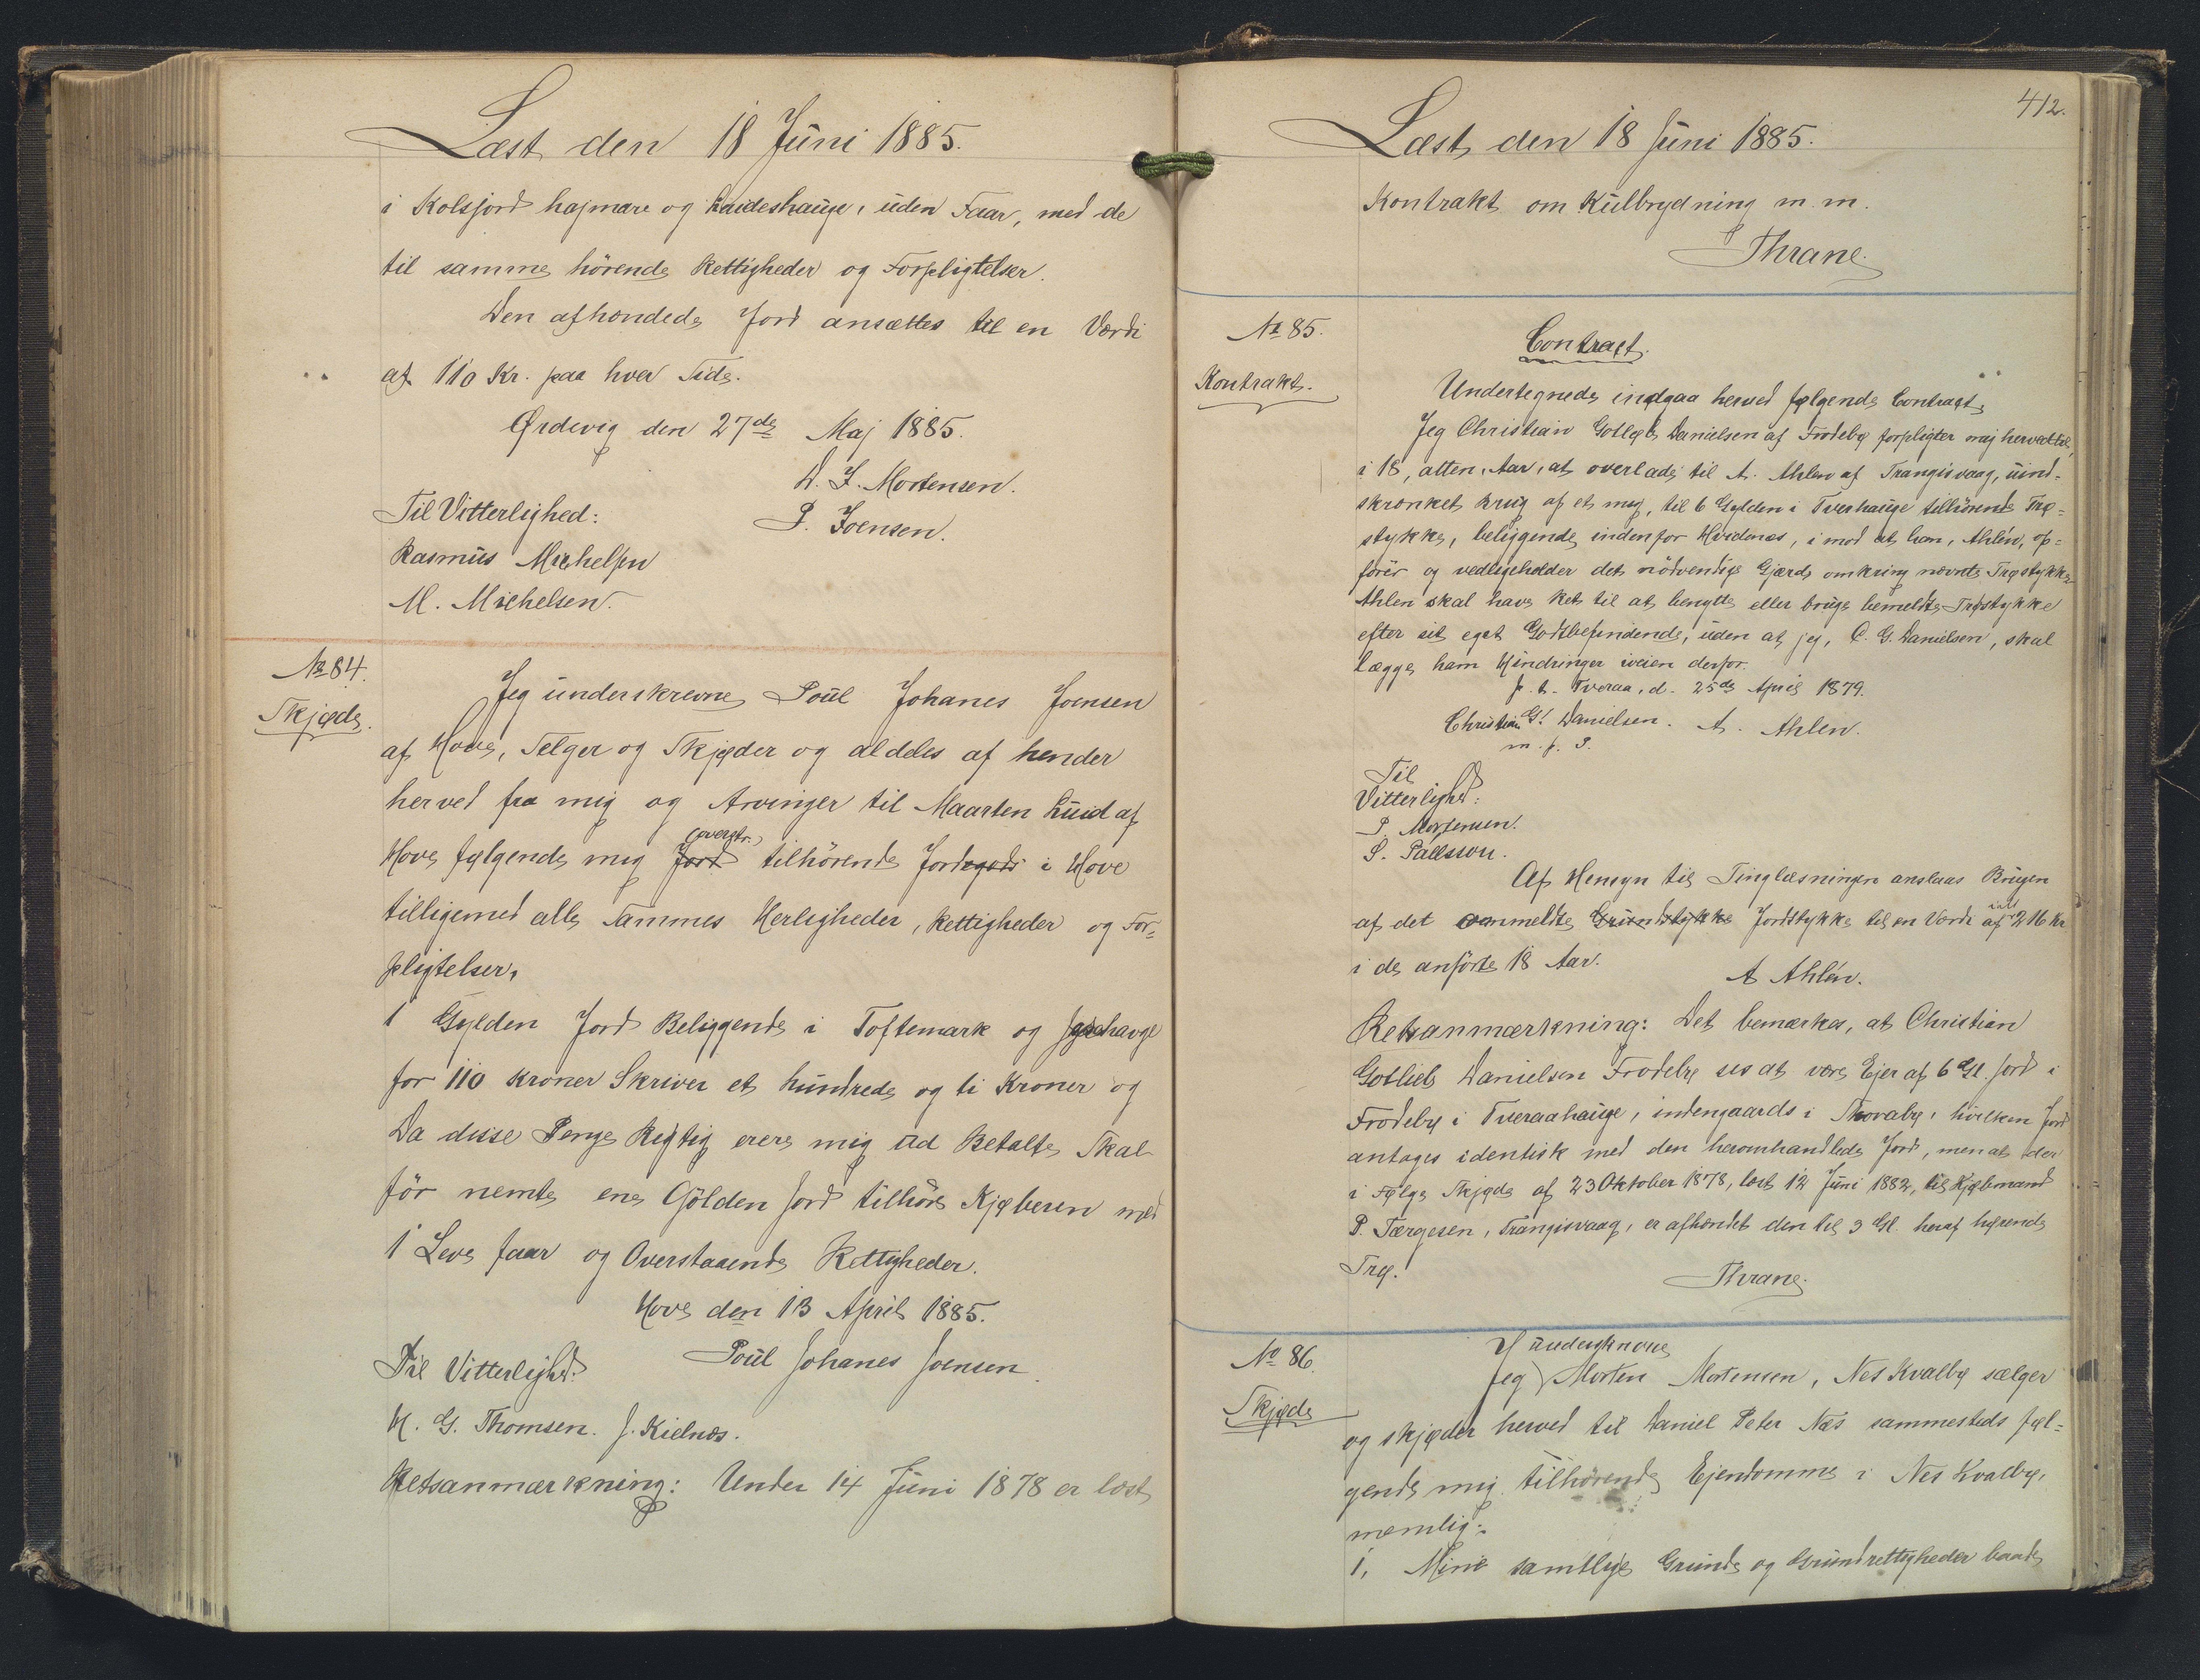 Læst den 18 Juni 1885.
i Kolsfjord hajmare og Laideshauge, uden Faar, med de
til samme hörende Rettigheder og Forpligtelser.
Den afhændede Jord ansættes til en Værdi
af 110 Kr. paa hver Side.
Ørdevig den 27de Maj 1885.
D. J. Mortensen.
Til Vitterlighed: P. Joensen.
Rasmus Michelsen
M. Michelsen.
No 84. Jeg underskrevne Poul Johanes Joensen
Skjøde.
af Hove, Selger og Skjøder og aldeles af hender
herved fra mig og Arvinger til Maarten Luid af
(overstr.)
Hove følgende mig Jord tilhörende Jordegods i Hove
tilligemed alle Sammes Herligheder, Rettigheder og For=
pligtelser,
1 Gylden Jord Beliggende i Toftemark og
for 110 Kroner Skriver et hundrede og ti Kroner og
Da disse Penge Rigtig erere mig ud Betalte, Skal
för nemte ene Gölden Jord tilhöre Kjøberen med
1 Leve faar og Overstaaende Rettigheder.
Hove den 13 April 1885.
Til Vitterlighed: Poul Johanes Joensen.
H. G. Thomsen. J. Kielnæs.
Retsanmærkning: Under 14 Juni 1878 er læst
412.
Læst den 18 Juni 1885.
Kontrakt om Kulbrydning m. m.
Thrane.
No 85. Contract.
Kontrakt.
Undertegnede indgaa herved følgende Contract,
Jeg Christian Gotlieb Danielsen af Frodebø forpligter mig herved til,
i 18, atten, Aar, at overlade til A. Ahlen af Trangisvaag, uind=
skrænket Brug af et mig, til 6 Gylden i Tverhauge tillhörende Trø=
stykke, beliggende indenfor Hvidenæs, i mod at han, Ahlén, op=
förer og vedligeholder det nödvendige Gjærde omkring nævnte Trøstykke
Ahlen skal have Ret til at benytte eller bruge bemeldte Trøstykke
efter sit eget Godtbefindende, uden at jeg, C. G. Danielsen, skal
lægge ham Hindringer iveien derfor.
p. t. Tveraa, d. 25de April 1879.
Christian G. Danielsen. A. Ahlén.
m. f. P.
Til
Vitterlighed:
P. Mortensen.
S. Pállsson.
Af Hensyn til Tinglæsningen anslaas Brugen
af det ommeldte Grundstykke Jordstykke til en Værdi ialt af 216 Kr
i de anförte 18 Aar.
A Ahlén.
Retsanmærkning: Det bemærkes, at Christian
Gotlieb Danielsen Frodebø ses at være Ejer af 6 Gl. Jord i
Frodebø i Tveraahauge, indengaards i Thoraby, hvilken Jord
antages identisk med den heromhandlede Jord, men at der
i Følge Skjøde af 23 Oktober 1878, læst 12 Juni 1882, til Kjøbmand
P. Tærgesen, Trangisvaag, er afhændet den til 3 Gl. heraf hørende
Trø.
Thrane.
No 86. underskrevne
Jeg Morten Mortensen, Nes Kvalbø sælger
Skjøde
og skjøder herved til Daniel Peter Næs sammesteds føl=
gende mig tilhörende Ejendomme i Nes Kvalbø,
nemlig:
1, Mine samtlige Grunde og Grundrettigheder baade